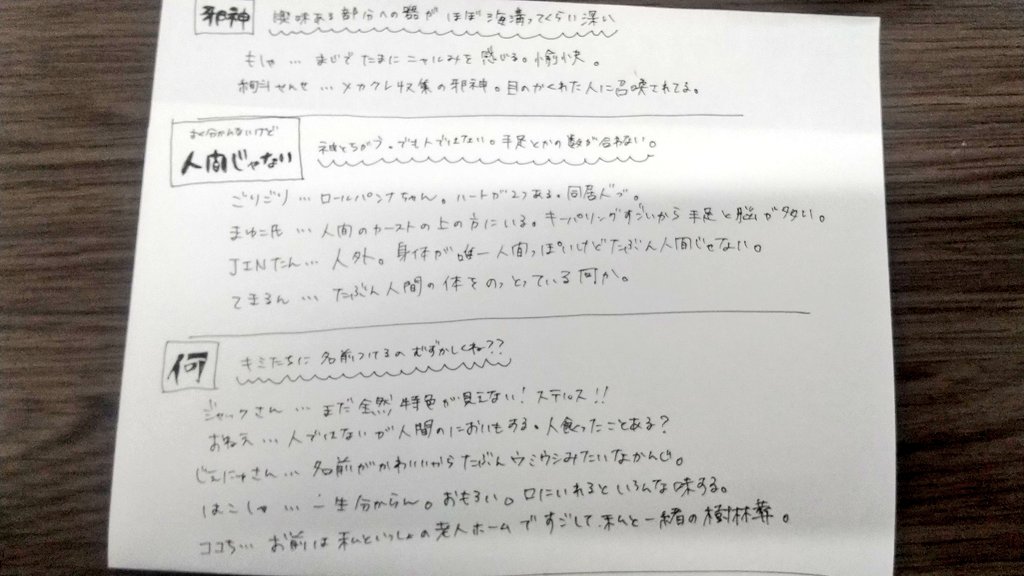 邪神 興味ある部分への器が ほぼ海溝ってくらい深い
もしゃ … まじで たまに ニャルみを 感じる。愉快。
せんせ … メカクレ収集の邪神。目のかくれた人に召喚されてる。
よく分かんないけど
人間じゃない 神とちがう。でも人ではない。手足とかの数が合わない。
ごりごり … ロールパンナちゃん。ハートが2つある。同居人づ。
まゆこ氏 … 人間のカーストの上の方にいる。キーパリングすごいから手足と脳が多い。
JINたん … 人外。身体が唯一人間っぽいけどたぶん人間じゃない。
てまるん … たぶん人間の体をのっとっている何か。
何 キミたちに 名前つけるの むずかしくね??
ジャックさん … まだ全然特色が見えない! ステルス!!
おねえ … 人ではないが人間のにおいもする。人食ったことある?
じぇにゅさん … 名前がかわいいからたぶんウミウシみたいなかんじ。
はこしゃ … 一生分からん。おもろい。口にいれるといろんな味する。
ココち … お前は私といっしょの老人ホームですごして、私と一緒の樹林葬。